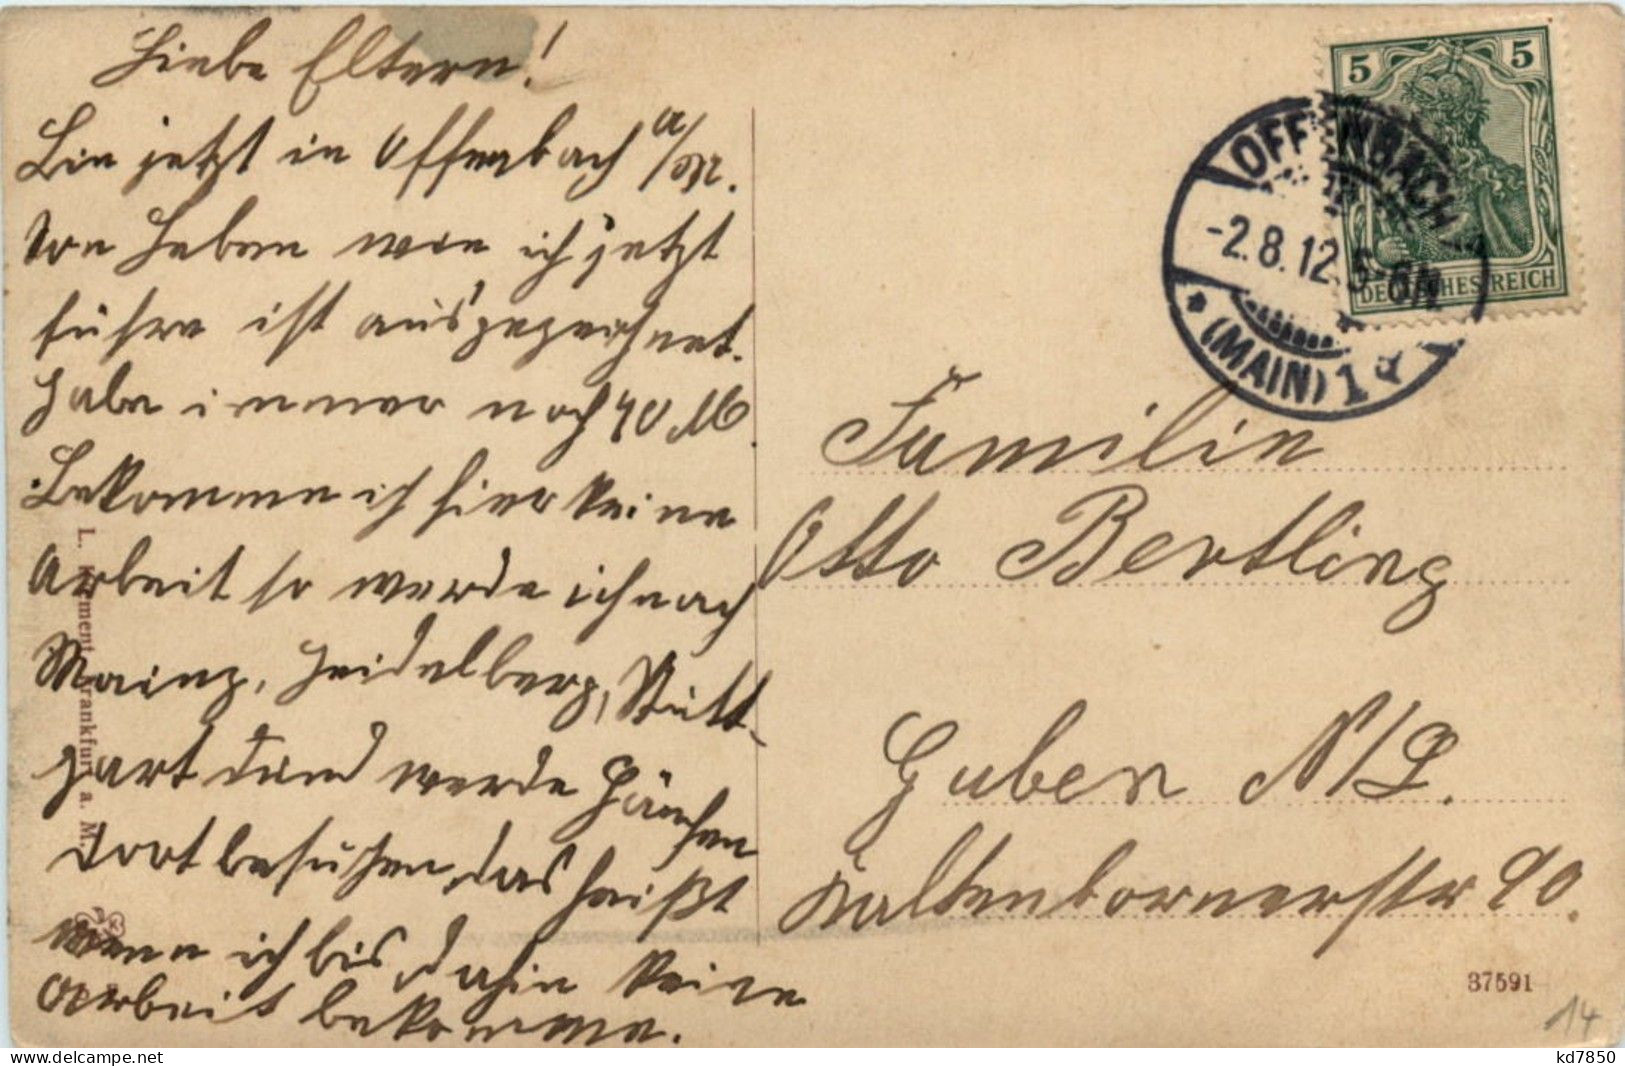 Liebe Eltern!
Bin jetzt in Offenbach a/M.
Das Leben was ich jetzt
führe ist ausgezeichnet.
Habe immer noch 40 M.
Bekomme ich hier keine
Arbeit so werde ich nach
Mainz, Heidelberg, Stutt-
gart und werde Hänschen
dort besuchen, das heißt
wenn ich bis dahin keine
Arbeit bekomme.
5 5
DEUTSCHES REICH
OFFENBACH
-2.8.12. 5-6N
* (MAIN) 1
Familie
Otto Bertling
Guben N/L.
Kaltenbornerstr 90.
37591
14
L. Klement, Frankfurt a. M.
kd7850